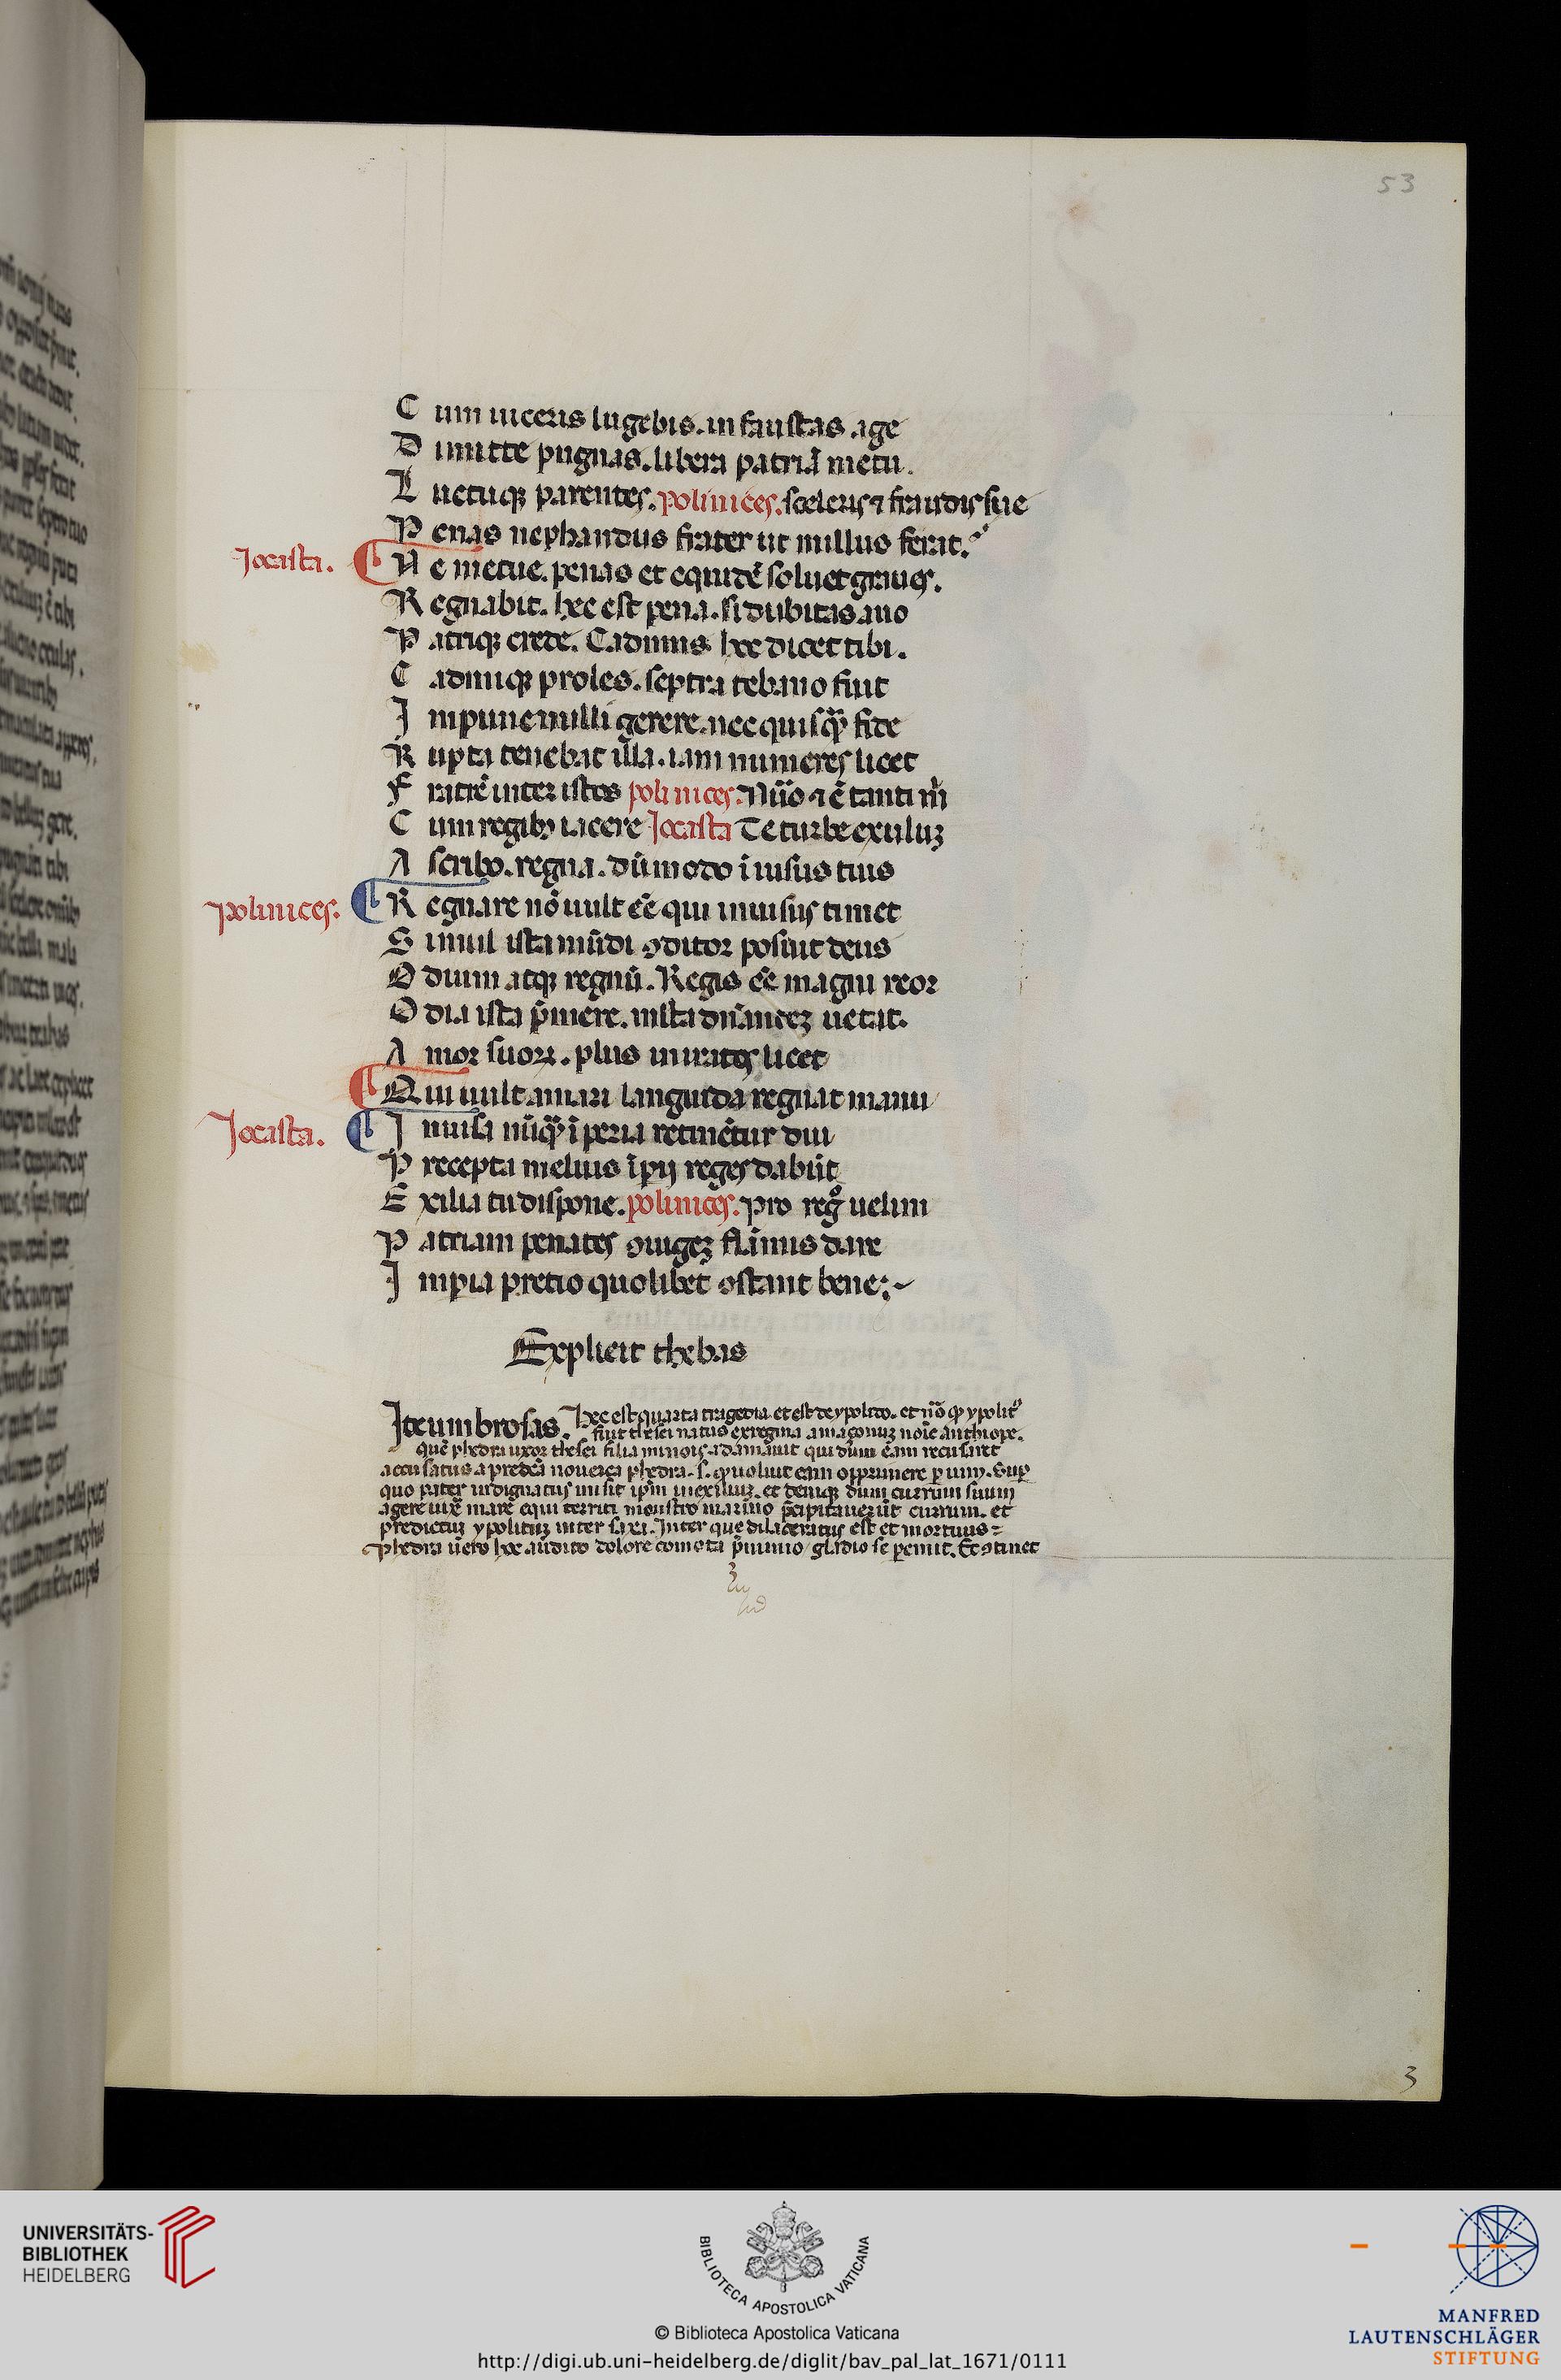 53
C um uiceris lugebis. infaustas age
D imitte pugnas. libera patriā metu.
L uctuqꝫ parentes. polinices. sceleris ⁊ fraudis sue
P enas nephandus frater ut nullus ferat.
Jocasta. N e metue. penas et equidē soluet graues.
R egnabit. hec est pena. si dubitas auo
P atriqꝫ crede. Cadmus hec dicet tibi.
C admiqꝫ proles. septra tebano fuit
I mpune nulli gerere. nec quisqꝫ fide
R upta tenebat illa. iam numeres licet
F ratrē inter istos polinices. Nūo ⁊ ē tanti m
C um regibꝫ iacere Jocasta Te turbe exuluꝫ
A scribo. regna. dūmodo īuisus tuis
polinices. R egnare nō uult eē qui inuisus timet
S imul ista mūdi ꝯditor posuit deus
O dium atqꝫ regnū. Regis eē magni reor
O dia ista p̄mere. multa dn̄antez uetat
A mor suorꝝ. plus in iratos licet
Q ui uult amari languida regnat manu
Jocasta. I nuisa nūqꝫ īperia retinētur diu
P recepta melius īpij reges dabūt
E xilia tu dispone. polinices. pro regͦ uelim
P atriam penates ꝯiugeꝫ flāmis dare
I mpia pretio quolibet ꝯstant bene:~
Explicit thebas
Ite umbrosas. Hec est quarta tragedia. et est de ypolito. et nō qꝫ ypolitꝰ
fuit thesei natus ex regina amaçonuꝫ noīe anthiope.
quē phedra uxor thesei filia minois. adamauit qui dum eam recusaret
accusatus a predcā nouerca phedra. s. qꝫ uoluit eam opprimere ꝑ uim. Sup̄
quo pater indignatus misit ipm̄ in exiliuꝫ. et deniqꝫ dum currum suum
agere iuxͣ mare equi territi monstro marino p̄cipitauerūt currum. et
predictuꝫ ypolituꝫ inter saxa. Inter que dilaceratus est et mortuus =
phedra uero hoc audito dolore comota p̄iuuio gladio se ꝑemit. Et ꝯtinet
3
UNIVERSITÄTS-
BIBLIOTHEK
HEIDELBERG
BIBLIOTECA APOSTOLICA VATICANA
© Biblioteca Apostolica Vaticana
http://digi.ub.uni-heidelberg.de/diglit/bav_pal_lat_1671/0111
MANFRED
LAUTENSCHLÄGER
STIFTUNG